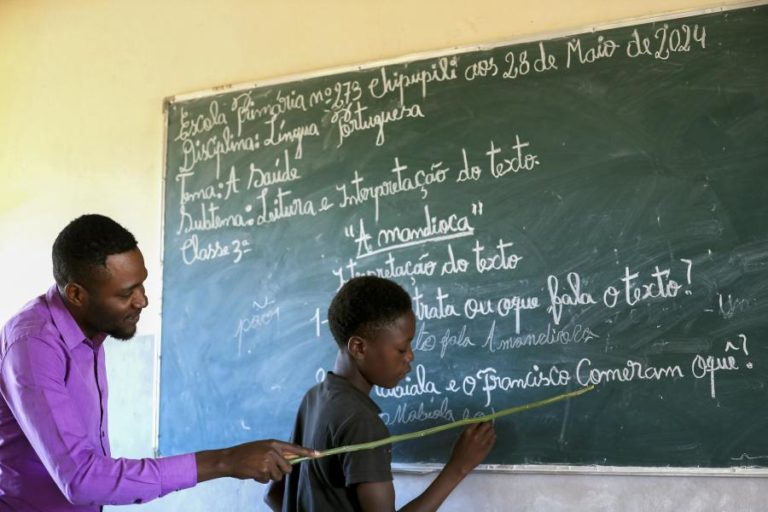 Escola Primária nº 273 Chipupili aos 28 de Maio de 2024
Disciplina: Língua Portuguesa
Tema: A Saúde
Subtema: Leitura e Interpretação do texto.
Classe 3ª
"A mandioca"
Interpretação do texto
1- trata ou oque fala o texto?
fala A mandioca
e o Francisco Comeram oquê?
Mabiala